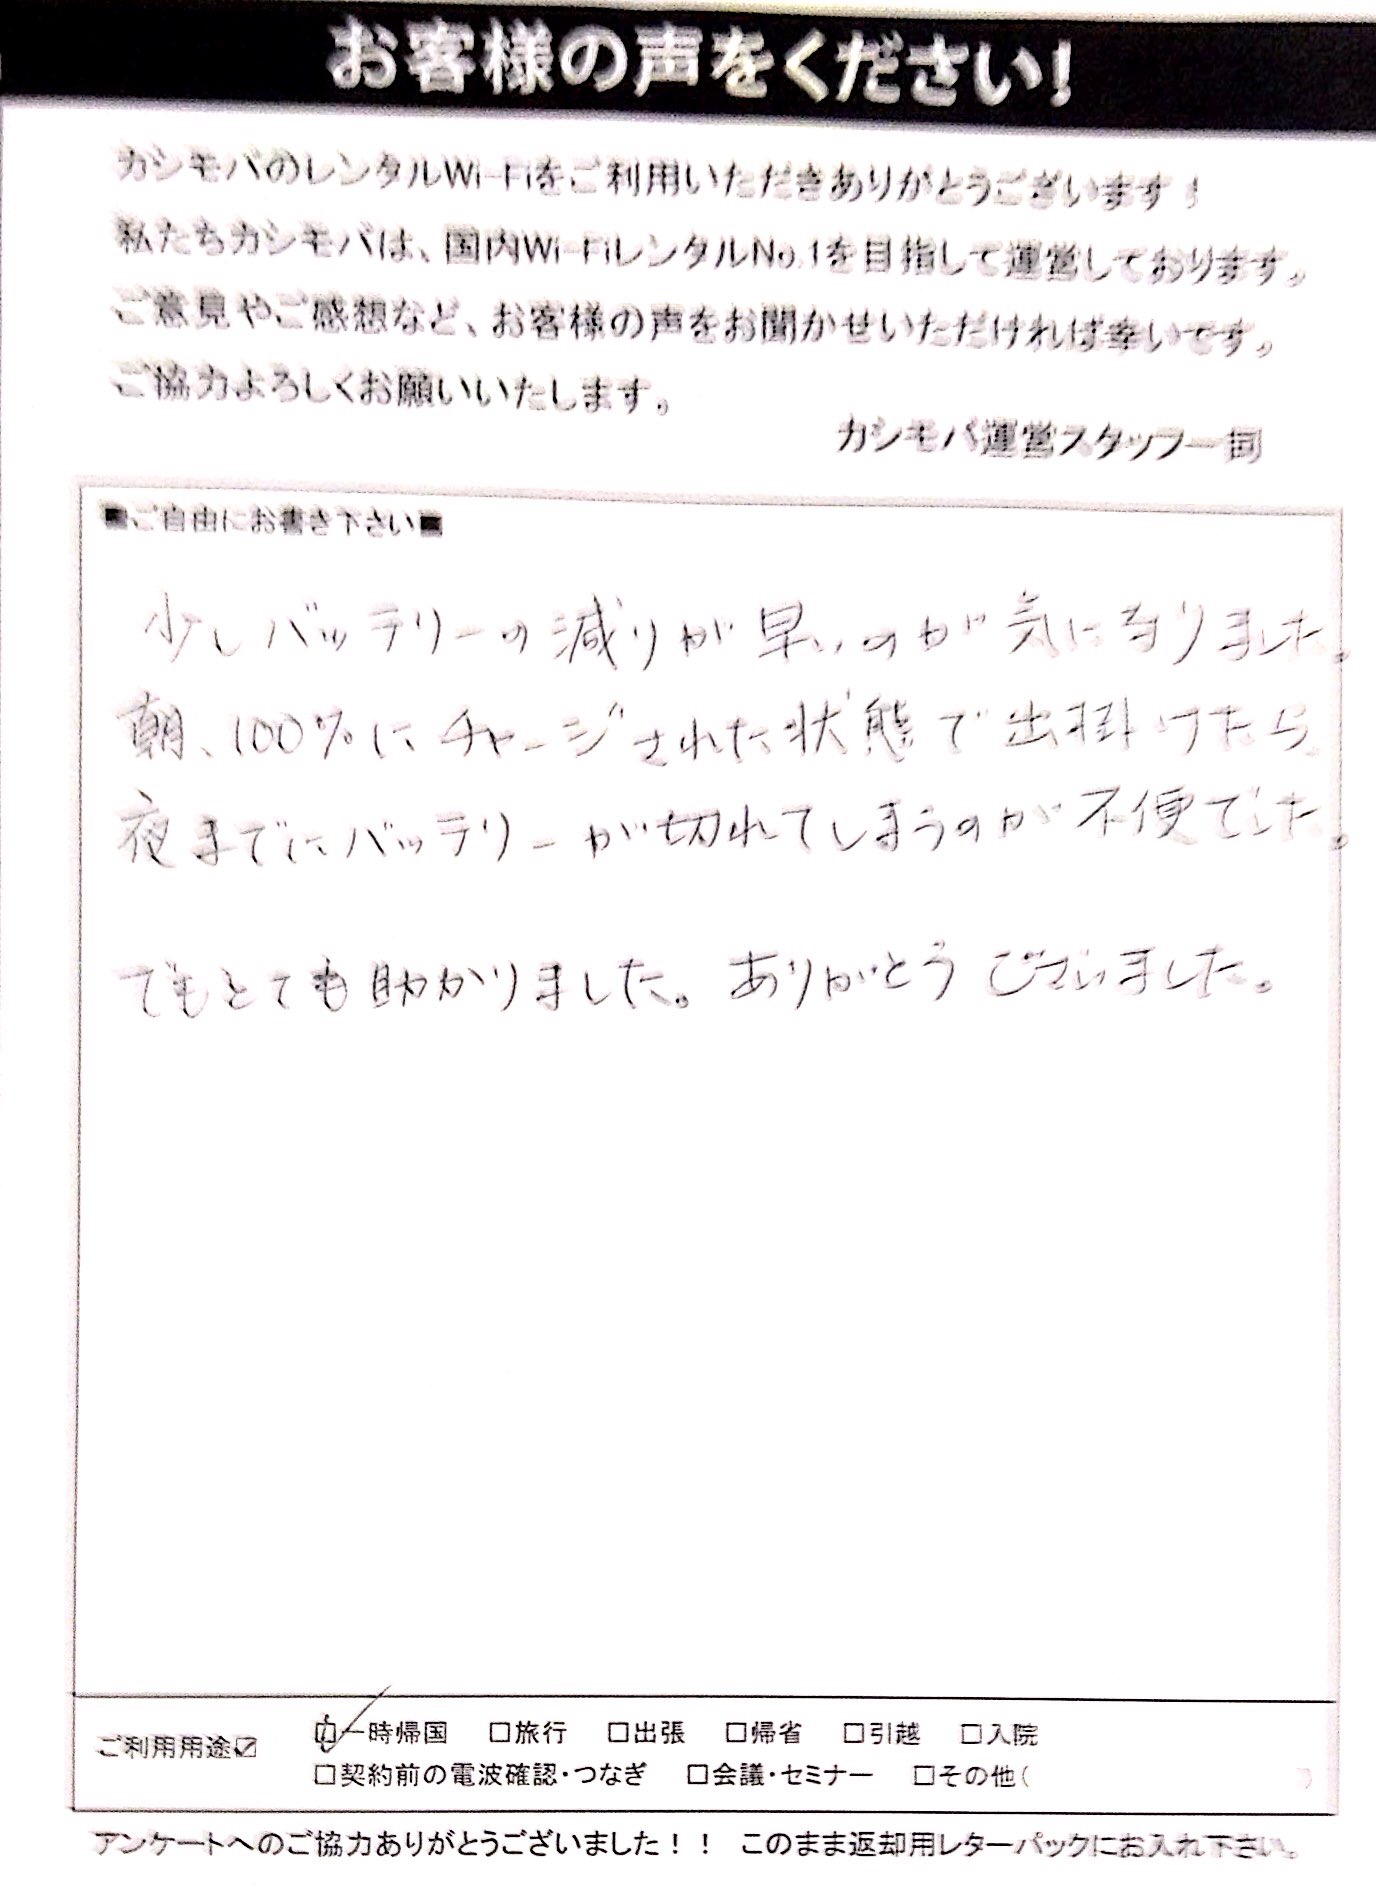 お客様の声をください!
カシモバのレンタルWi-Fiをご利用いただきありがとうございます!
私たちカシモバは、国内Wi-FiレンタルNo.1を目指して運営しております。
ご意見やご感想など、お客様の声をお聞かせいただければ幸いです。
ご協力よろしくお願いいたします。
カシモバ運営スタッフ一同
■ご自由にお書き下さい■
少しバッテリーの減りが早いのが気になりました。
朝、100%にチャージされた状態で出掛けたら
夜までにバッテリーが切れてしまうのが不便でした。
でもとても助かりました。ありがとうございました。
ご利用用途☑ ☑一時帰国 □旅行 □出張 □帰省 □引越 □入院
□契約前の電波確認・つなぎ □会議・セミナー □その他( )
アンケートへのご協力ありがとうございました!! このまま返却用レターパックにお入れ下さい。